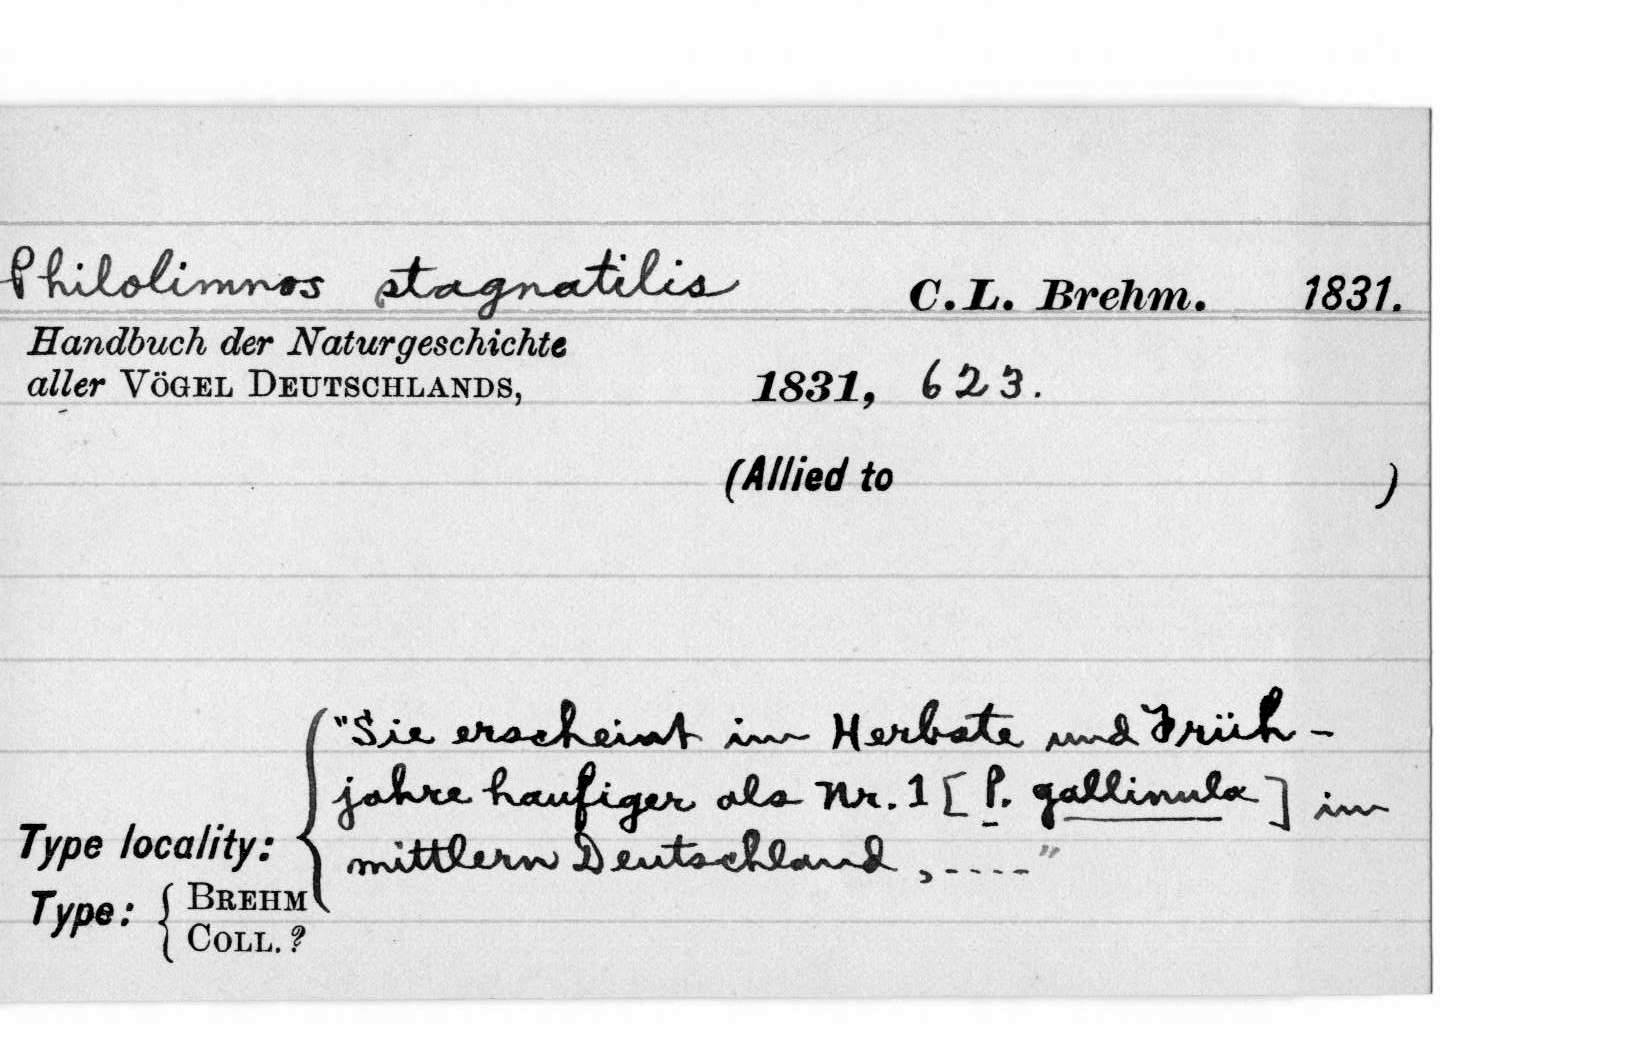 Philolimnos stagnatilis C.L. Brehm. 1831.
Handbuch der Naturgeschichte
aller VÖGEL DEUTSCHLANDS, 1831, 623.
(Allied to )
"Sie erscheint im Herbste und Früh-
jahre haufiger als Nr. 1 [P. gallinula] im
Type locality: { mittlern Deutschland, ----"
Type: { BREHM
COLL. ?